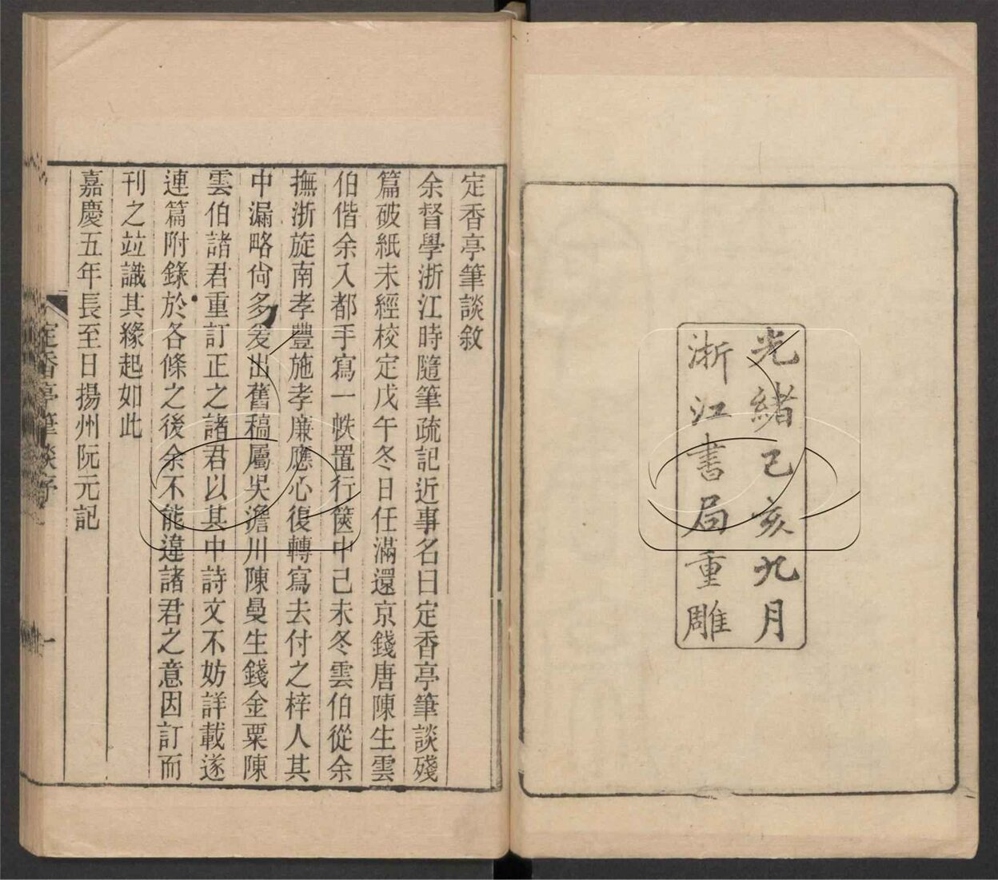 光緒己亥九月
浙江書局重雕
定香亭筆談敘
余督學浙江時隨筆疏記近事名曰定香亭筆談殘
篇破紙未經校定戊午冬日任滿還京錢唐陳生雲
伯偕余入都手寫一帙置行篋中己未冬雲伯從余
撫浙旋南孝豐施孝廉應心復轉寫去付之梓人其
中漏略尙多爰出舊稿屬吳澹川陳曼生錢金粟陳
雲伯諸君重訂正之諸君以其中詩文不妨詳載遂
連篇附錄於各條之後余不能違諸君之意因訂而
刊之竝識其緣起如此
嘉慶五年長至日揚州阮元記
定香亭筆談序
一